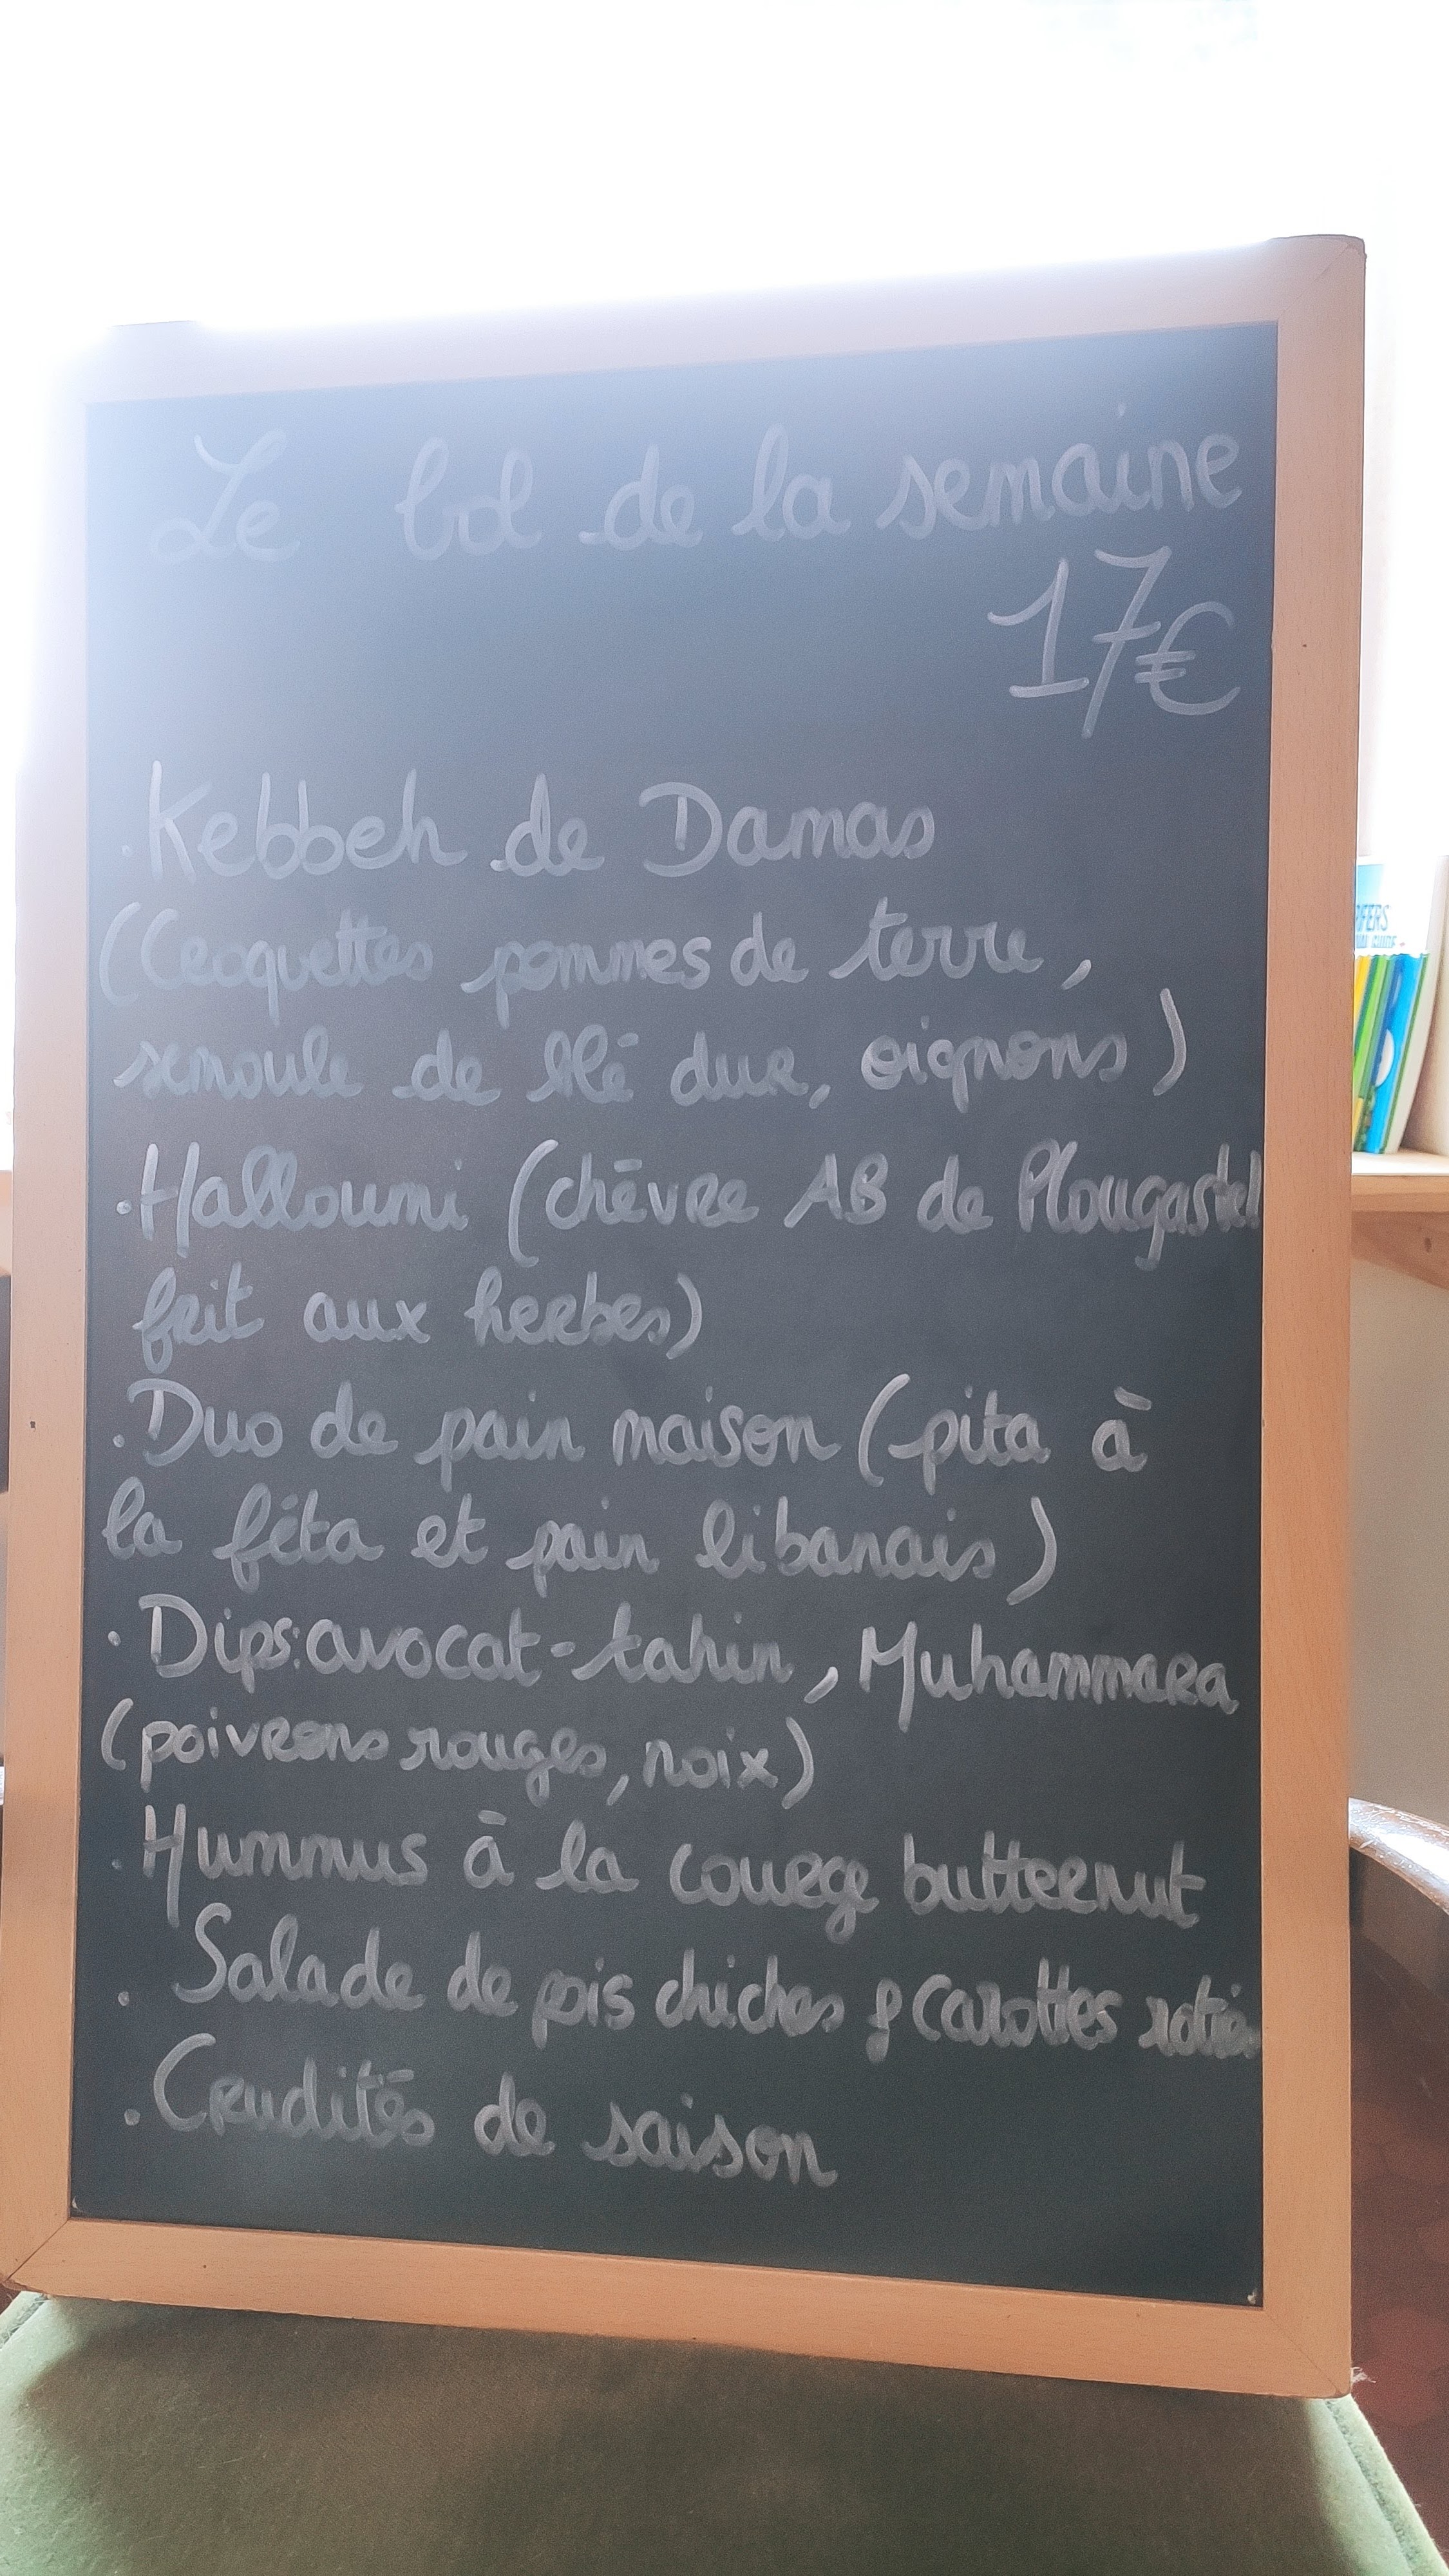 Le bol de la semaine
17€
. Kebbeh de Damas
(Croquettes pommes de terre,
semoule de blé dur, oignons)
. Halloumi (chèvre AB de Plougastel
frit aux herbes)
. Duo de pain maison (pita à
la féta et pain libanais)
. Dips: avocat-tahin, Muhammara
(poivrons rouges, noix)
. Hummus à la courge butternut
. Salade de pois chiches & carottes roties
. Crudités de saison